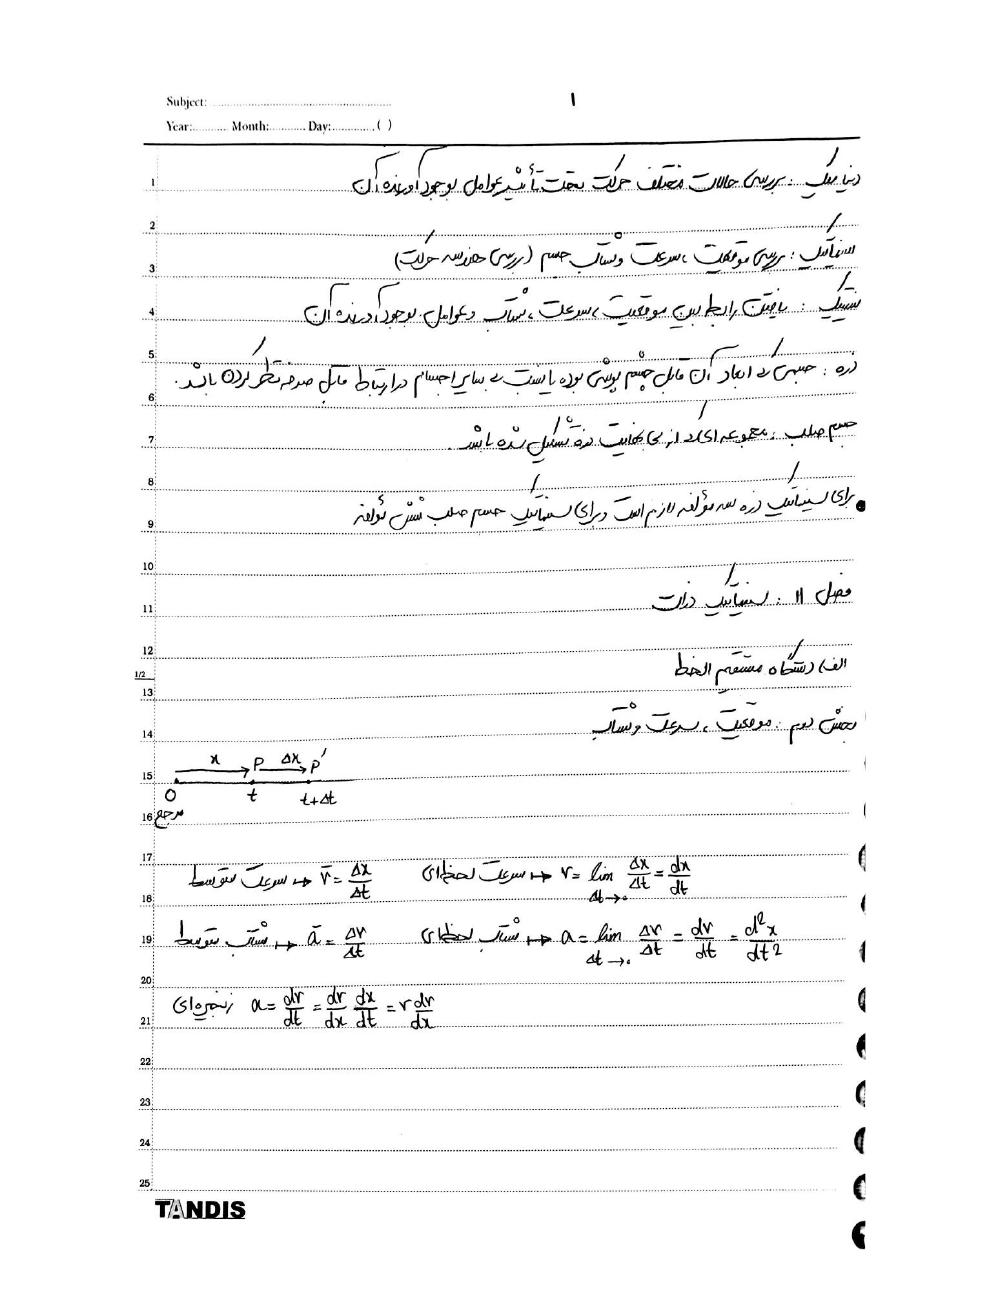 Subject:
1
Year: Month: Day: ( )
دینامیک : بررسی حالات مختلف حرکت تحت تأثیر عوامل بوجود آورنده آن
سینماتیک : بررسی موقعیت ، سرعت و شتاب جسم (بررسی هندسه حرکت)
سینتیک : یافتن رابطه بین موقعیت ، سرعت ، شتاب و عوامل بوجود آورنده آن
ذره : جسمی که ابعاد آن قابل چشم پوشی بوده یا نسبت به سایر اجسام در ارتباط قابل صرفه نظر کردن باشد.
جسم صلب : مجموعه ای که از بی نهایت ذره تشکیل شده باشد.
برای سینماتیک ذره سه مؤلفه لازم است و برای سینماتیک جسم صلب شش مؤلفه
فصل 11 : سینماتیک ذرات
الف) دستگاه مستقیم الخط
بخش دوم : موقعیت ، سرعت و شتاب
x P Δx P'
O t t+Δt
مرجع
سرعت متوسط ↦ v̄ = Δx/Δt سرعت لحظه ای ↦ v = lim Δt→۰ Δx/Δt = dx/dt
شتاب متوسط ↦ ā = Δv/Δt شتاب لحظه ای ↦ a = lim Δt→۰ Δv/Δt = dv/dt = d²x/dt²
زنجیره ای a = dv/dt = dv/dx dx/dt = v dv/dx
1
2
3
4
5
6
7
8
9
10
11
12
1/2
13
14
15
16
17
18
19
20
21
22
23
24
25
TANDIS